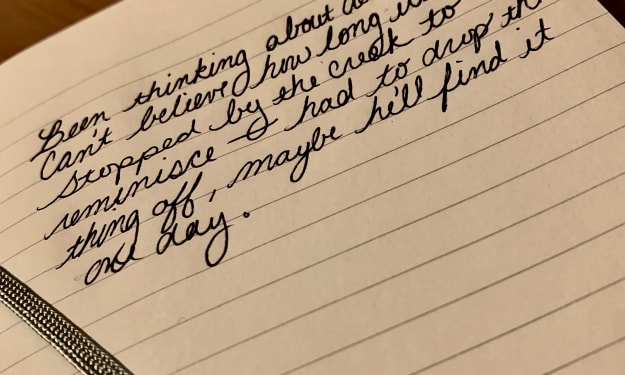 Been thinking about
Can't believe how long
stopped by the creek to
reminisce & had to drop
thing off, maybe he'll find it
one day.